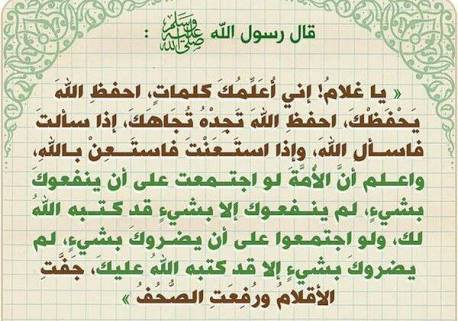 قال رسول الله ﷺ :
« يا غلامُ! إني أُعَلِّمُكَ كلماتٍ، احفظِ اللهَ
يَحْفَظْكَ، احفظِ اللهَ تَجِدْهُ تُجَاهَكَ، إذا سألتَ
فاسألِ اللهَ، وإذا استَعَنْتَ فاستَعِنْ باللهِ،
واعلم أنَّ الأمةَ لو اجتمعت على أن ينفعوك
بشيءٍ، لم ينفعوك إلا بشيءٍ قد كتبه اللهُ
لك، ولو اجتمعوا على أن يضروكَ بشيءٍ، لم
يضروكَ بشيءٍ إلا قد كتبه اللهُ عليكَ، جَفَّتِ
الأقلامُ ورُفعَتِ الصُّحُفُ »